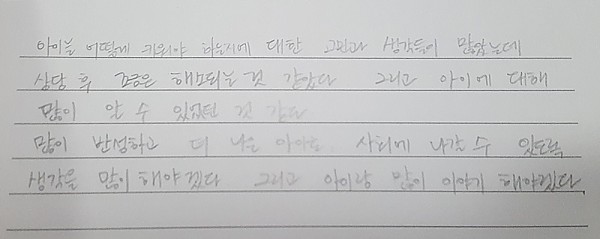 아이를 어떻게 키워야 하는지에 대한 고민과 생각들이 많았는데
상담 후 조금은 해소되는 것 같았다 그리고 아이에 대해
많이 알 수 있었던 것 같다
많이 반성하고 더 나은 아이로 사회에 나갈 수 있도록
생각을 많이 해야겠다 그리고 아이랑 많이 이야기 해야겠다